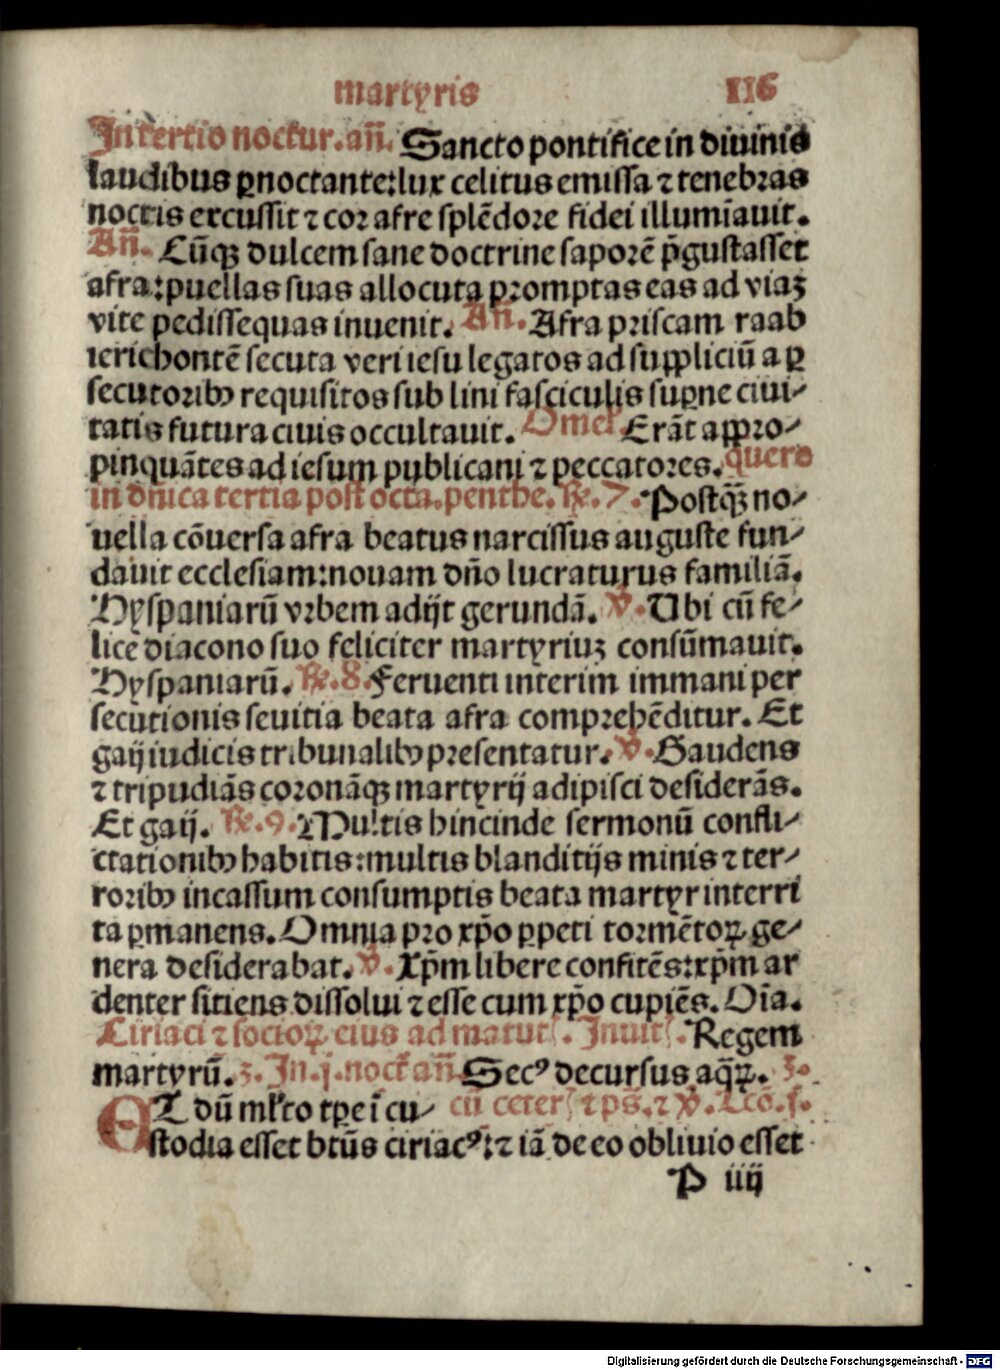 martyris 116
In tertio noctur. an̄. Sancto pontifice in diuinis
laudibus ꝑnoctante: lux celitus emissa ⁊ tenebras
noctis excussit ⁊ cor afre splēdore fidei illumīauit.
An̄. Cūqꝫ dulcem sane doctrine saporē p̄gustasset
afra: puellas suas allocuta promptas eas ad viaꝫ
vite pedissequas inuenit. An̄. Afra priscam raab
ierichontē secuta veri iesu legatos ad suppliciū a ꝑ
secutoribꝰ requisitos sub lini fasciculis suꝑne ciui-
tatis futura ciuis occultauit. Omel'. Erāt appro-
pinquātes ad iesum publicani ⁊ peccatores. quere
in dn̄ica tertia post octa. penthe. ℟. 7. Postqꝫ̄ no-
uella cōuersa afra beatus narcissus auguste fun-
dauit ecclesiam: nouam dn̄o lucraturus familiā.
Hyspaniarū vrbem adijt gerundā. ℣. Ubi cū fe-
lice diacono suo feliciter martyriuꝫ consūmauit.
Hyspaniarū. ℟. 8. Feruenti interim immani per
secutionis seuitia beata afra comprehēditur. Et
gaij iudicis tribunalibꝰ presentatur. ℣. Gaudens
⁊ tripudiās coronāqꝫ martyrij adipisci desiderās.
Et gaij. ℟. 9. Multis hincinde sermonū confli-
ctationibꝰ habitis: multis blanditijs minis ⁊ ter-
roribꝰ incassum consumptis beata martyr interri
ta ꝑmanens. Omnia pro xp̄o ꝑpeti tormētoꝝ ge-
nera desiderabat. ℣. Xp̄m libere confitēs: xp̄m ar
denter sitiens dissolui ⁊ esse cum xp̄o cupiēs. Oīa.
Ciriaci ⁊ socioꝝ eius ad matut. Inuit. Regem
martyrū. 3. In. j. noct̄ an̄ Secꝰ decursus aq̄ꝝ. 3.
ET dū ml'to tꝑe ī cu- cū ceter ⁊ ps̄. ⁊ ℣. Lcō. j.
stodia esset bt̄us ciriacꝰ: ⁊ iā de eo obliuio esset
P iiij
Digitalisierung gefördert durch die Deutsche Forschungsgemeinschaft - DFG